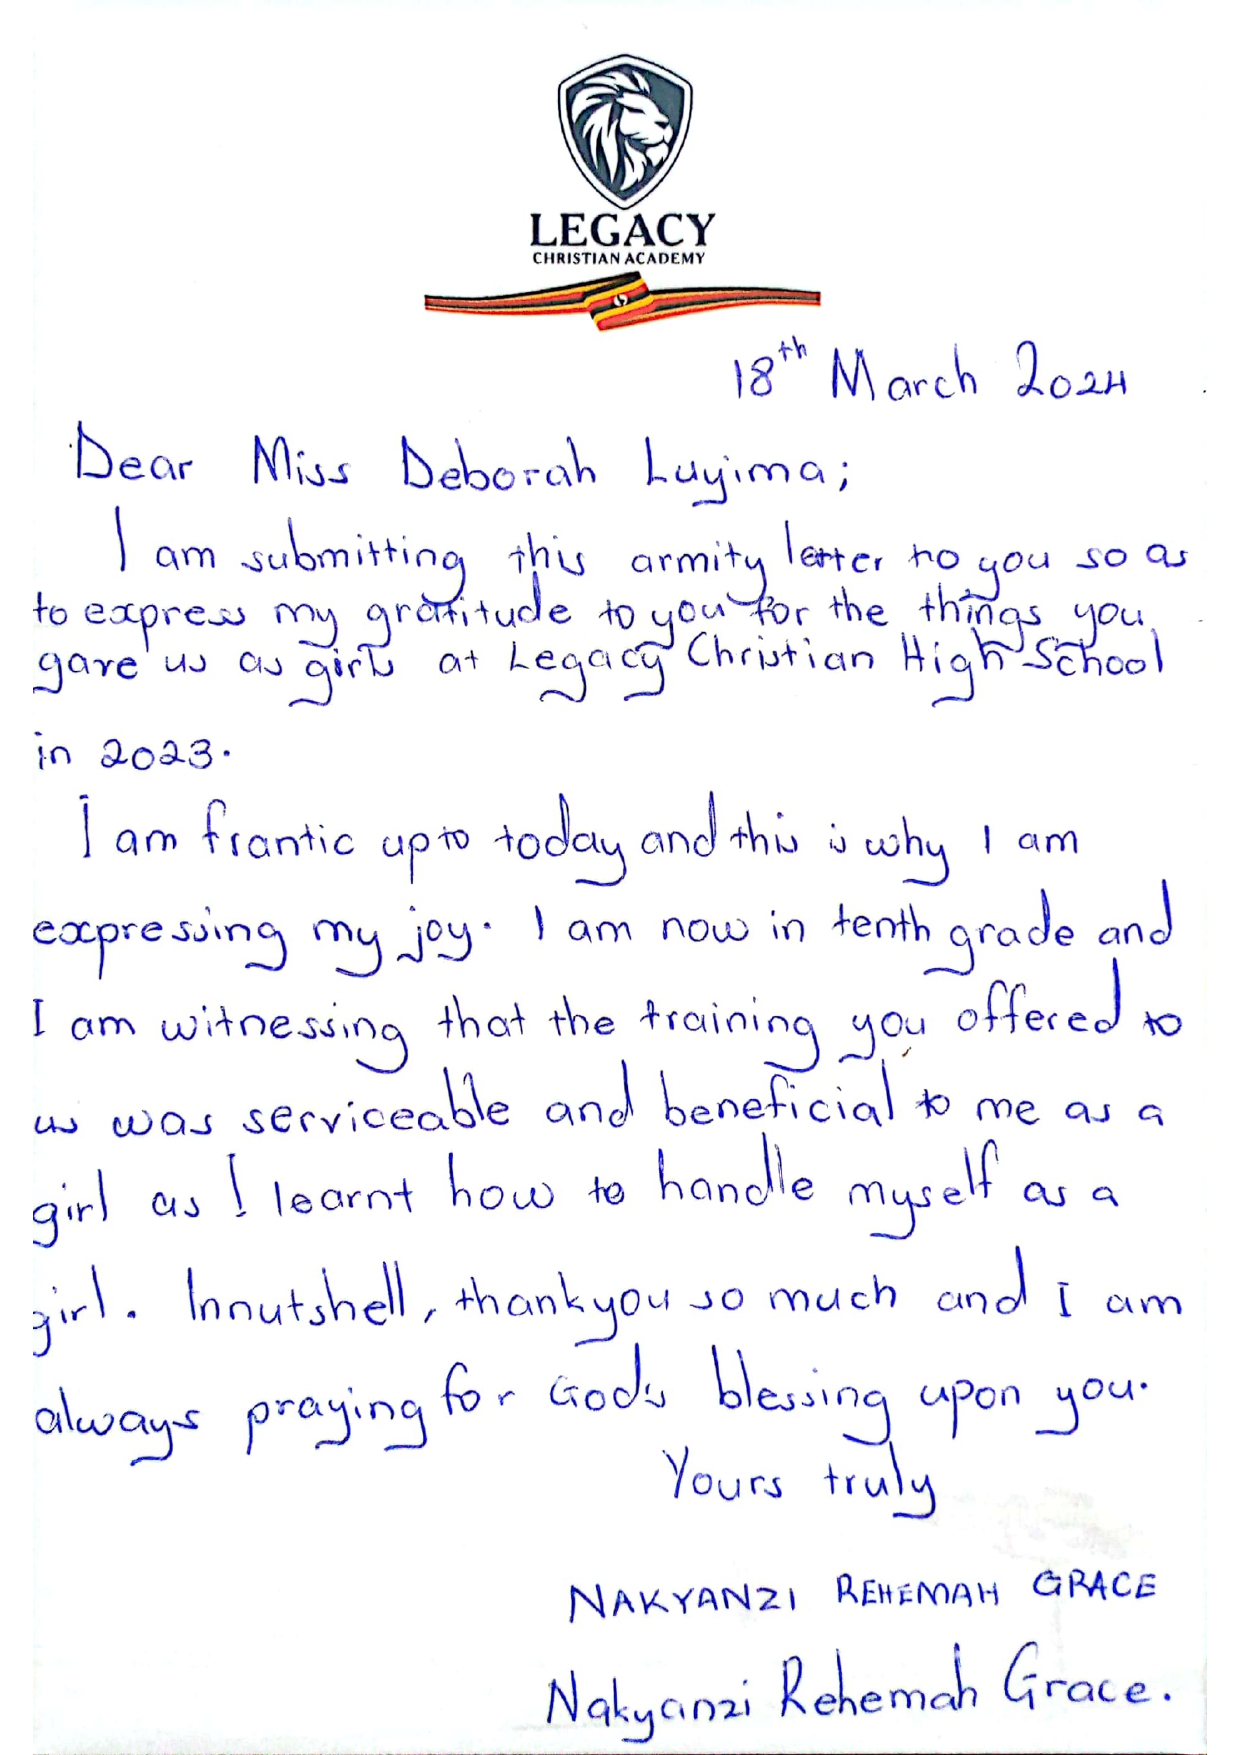 LEGACY
CHRISTIAN ACADEMY
18th March 2024
Dear Miss Deborah Luyima;
I am submitting this armity letter to you so as
to express my gratitude to you for the things you
gave us as girls at Legacy Christian High School
in 2023.
I am frantic upto today and this is why I am
expressing my joy. I am now in tenth grade and
I am witnessing that the training you offered to
us was serviceable and beneficial to me as a
girl as I learnt how to handle myself as a
girl. Innutshell, thankyou so much and I am
always praying for Gods blessing upon you.
Yours truly
NAKYANZI REHEMAH GRACE
Nakyanzi Rehemah Grace.